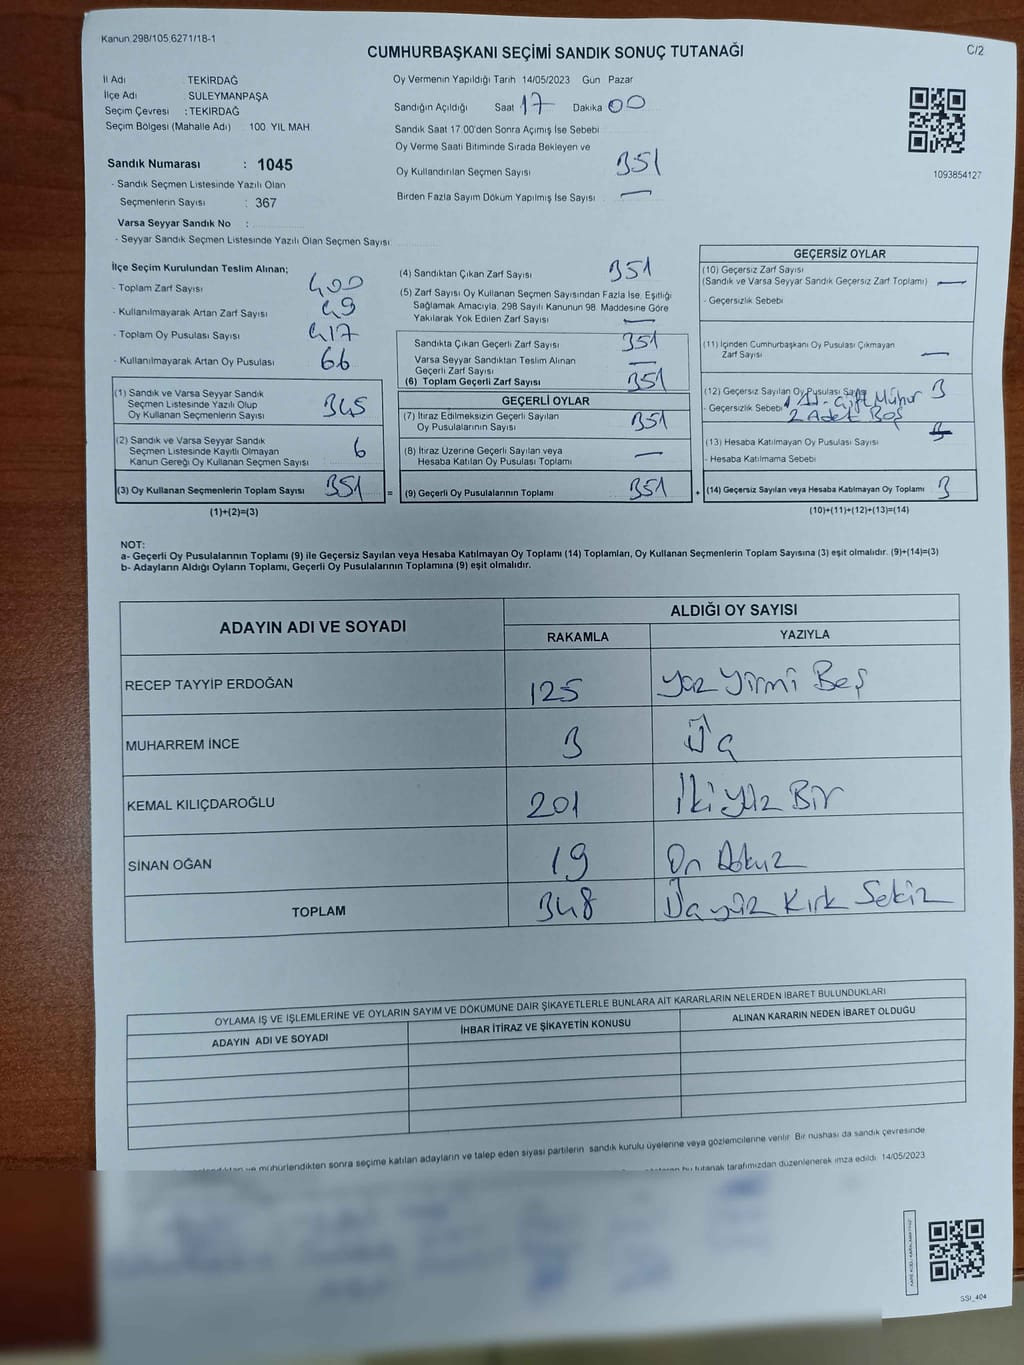 Kanun 298/105.6271/18-1
CUMHURBAŞKANI SEÇİMİ SANDIK SONUÇ TUTANAĞI
C/2
İl Adı TEKİRDAĞ
İlçe Adı SÜLEYMANPAŞA
Seçim Çevresi : TEKİRDAĞ
Seçim Bölgesi (Mahalle Adı) 100. YIL MAH.
Sandık Numarası : 1045
- Sandık Seçmen Listesinde Yazılı Olan
Seçmenlerin Sayısı : 367
Varsa Seyyar Sandık No :
- Seyyar Sandık Seçmen Listesinde Yazılı Olan Seçmen Sayısı
Oy Vermenin Yapıldığı Tarih 14/05/2023 Gün Pazar
Sandığın Açıldığı Saat 17 Dakika 00
Sandık Saat 17.00'den Sonra Açımış İse Sebebi
Oy Verme Saati Bitiminde Sırada Bekleyen ve
Oy Kullandırılan Seçmen Sayısı 351
Birden Fazla Sayım Döküm Yapılmış İse Sayısı —
1093854127
İlçe Seçim Kurulundan Teslim Alınan;
- Toplam Zarf Sayısı 400
- Kullanılmayarak Artan Zarf Sayısı 49
- Toplam Oy Pusulası Sayısı 417
- Kullanılmayarak Artan Oy Pusulası 66
(1) Sandık ve Varsa Seyyar Sandık
Seçmen Listesinde Yazılı Olup
Oy Kullanan Seçmenlerin Sayısı 345
(2) Sandık ve Varsa Seyyar Sandık
Seçmen Listesinde Kayıtlı Olmayan
Kanun Gereği Oy Kullanan Seçmen Sayısı 6
(3) Oy Kullanan Seçmenlerin Toplam Sayısı 351 =
(1)+(2)=(3)
(4) Sandıktan Çıkan Zarf Sayısı 351
(5) Zarf Sayısı Oy Kullanan Seçmen Sayısından Fazla İse, Eşitliği
Sağlamak Amacıyla, 298 Sayılı Kanunun 98. Maddesine Göre
Yakılarak Yok Edilen Zarf Sayısı —
Sandıkta Çıkan Geçerli Zarf Sayısı 351
Varsa Seyyar Sandıktan Teslim Alınan
Geçerli Zarf Sayısı —
(6) Toplam Geçerli Zarf Sayısı 351
GEÇERLİ OYLAR
(7) İtiraz Edilmeksizin Geçerli Sayılan
Oy Pusulalarının Sayısı 351
(8) İtiraz Üzerine Geçerli Sayılan veya
Hesaba Katılan Oy Pusulası Toplamı —
(9) Geçerli Oy Pusulalarının Toplamı 351 +
GEÇERSİZ OYLAR
(10) Geçersiz Zarf Sayısı
(Sandık ve Varsa Seyyar Sandık Geçersiz Zarf Toplamı) —
- Geçersizlik Sebebi
(11) İçinden Cumhurbaşkanı Oy Pusulası Çıkmayan
Zarf Sayısı —
(12) Geçersiz Sayılan Oy Pusulası Sayısı 3
- Geçersizlik Sebebi Çift Mühür
2 Adet Boş
(13) Hesaba Katılmayan Oy Pusulası Sayısı
- Hesaba Katılmama Sebebi
(14) Geçersiz Sayılan veya Hesaba Katılmayan Oy Toplamı 3
(10)+(11)+(12)+(13)=(14)
NOT:
a- Geçerli Oy Pusulalarının Toplamı (9) ile Geçersiz Sayılan veya Hesaba Katılmayan Oy Toplamı (14) Toplamları, Oy Kullanan Seçmenlerin Toplam Sayısına (3) eşit olmalıdır. (9)+(14)=(3)
b- Adayların Aldığı Oyların Toplamı, Geçerli Oy Pusulalarının Toplamına (9) eşit olmalıdır.
ADAYIN ADI VE SOYADI
ALDIĞI OY SAYISI
RAKAMLA YAZIYLA
RECEP TAYYİP ERDOĞAN 125 Yüz Yirmi Beş
MUHARREM İNCE 3 Üç
KEMAL KILIÇDAROĞLU 201 İki Yüz Bir
SİNAN OĞAN 19 On Dokuz
TOPLAM 348 Üçyüz Kırk Sekiz
OYLAMA İŞ VE İŞLEMLERİNE VE OYLARIN SAYIM VE DÖKÜMÜNE DAİR ŞİKAYETLERLE BUNLARA AİT KARARLARIN NELERDEN İBARET BULUNDUKLARI
ADAYIN ADI VE SOYADI İHBAR İTİRAZ VE ŞİKAYETİN KONUSU ALINAN KARARIN NEDEN İBARET OLDUĞU
ve mühürlendikten sonra seçime katılan adayların ve talep eden siyasi partilerin sandık kurulu üyelerine veya gözlemcilerine verilir. Bir nüshası da sandık çevresinde
bu tutanak tarafımızdan düzenlenerek imza edildi. 14/05/2023
SSI_404